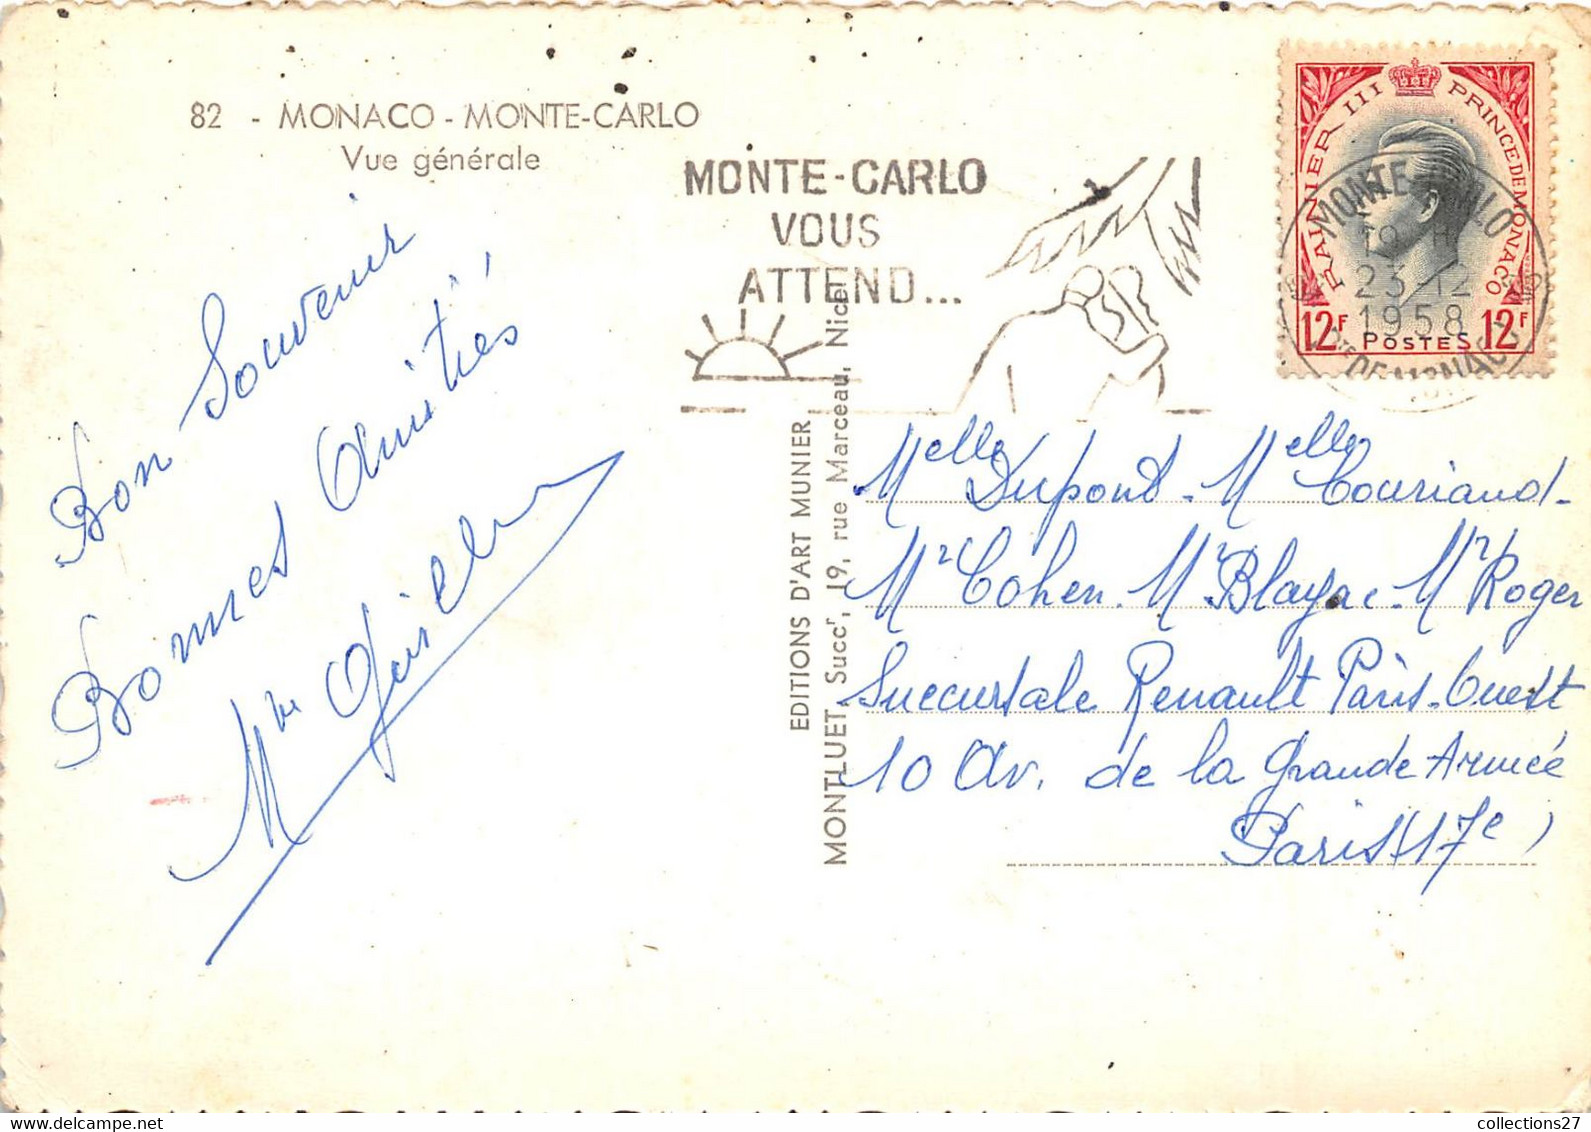 82 - MONACO - MONTE-CARLO
Vue générale
MONTE-CARLO
VOUS
ATTEND...
RAINIER III PRINCE DE MONACO
12F POSTES 12F
MONTE-CARLO
19 H
23-12
1958
PTE DE MONACO
Bon Souvenir
Bonnes Amitiés
Mme
EDITIONS D'ART MUNIER
MONTLUET, Succr, 19, rue Marceau, Nice
Melle Dupont - Melle Couriaud -
Mr Cohen. Mr Blayac - Mr Roger
Succursale Renault Paris-Ouest
10 Av. de la Grande Armée
Paris (17e)
collections27